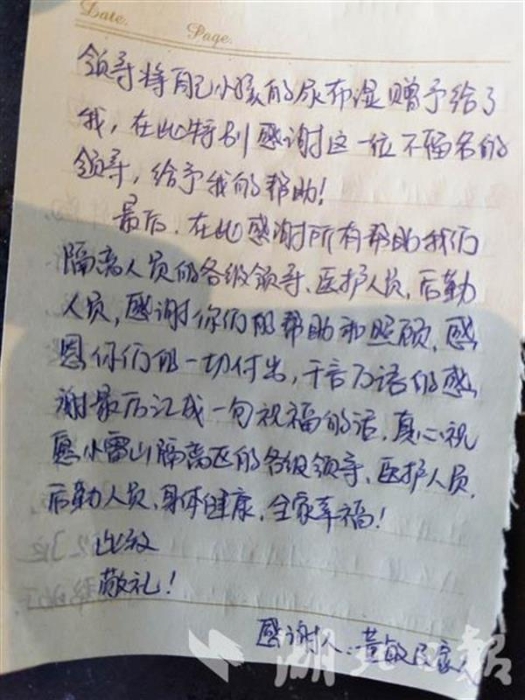 Date. Page.
领导将自己小孩的尿布湿赠予给了
我，在此特别感谢这一位不留名的
领导，给予我的帮助！
最后，在此感谢所有帮助我们
隔离人员的各级领导、医护人员，后勤
人员，感谢你们的帮助和照顾，感
恩你们的一切付出，千言万语的感
谢最后汇成一句祝福的话，真心祝
愿小雷山隔离区的各级领导、医护人员，
后勤人员，身体健康，全家幸福！
此致
敬礼！
感谢人：黄敏
湖北日报